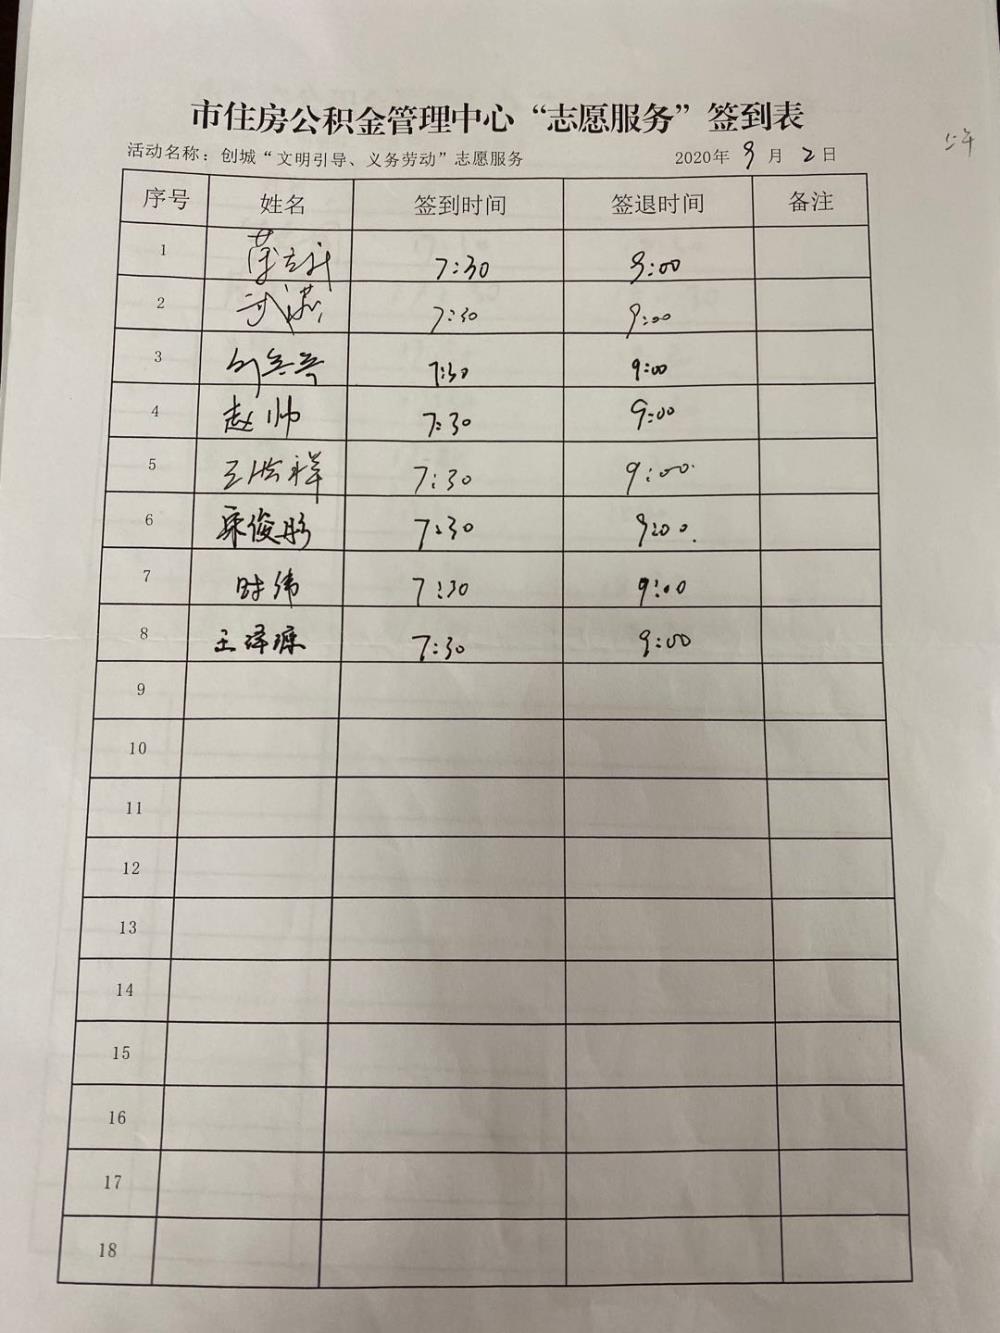 市住房公积金管理中心“志愿服务”签到表
上午
活动名称：创城“文明引导、义务劳动”志愿服务 2020年 9 月 2 日
序号 姓名 签到时间 签退时间 备注
1 7:30 9:00
2 7:30 9:00
3 7:30 9:00
4 赵帅 7:30 9:00
5 王洪祥 7:30 9:00
6 宋俊彤 7:30 9:00
7 时伟 7:30 9:00
8 王泽 7:30 9:00
9
10
11
12
13
14
15
16
17
18